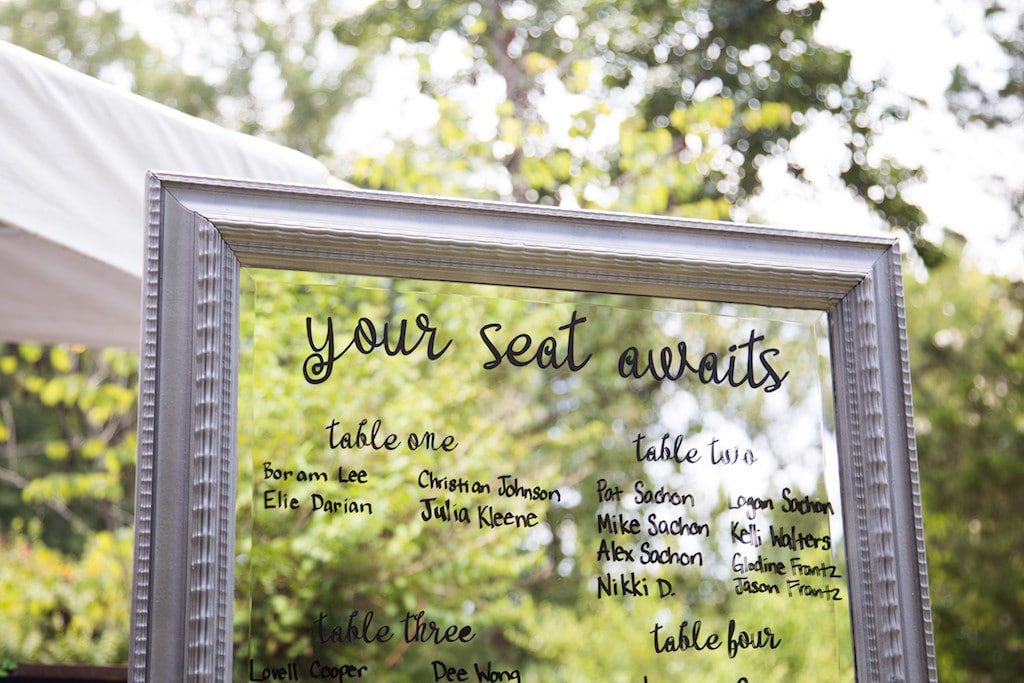 your seat awaits
table one
Boram Lee Christian Johnson
Elie Darian Julia Kleene
table two
Pat Sachon Logan Sachon
Mike Sachon Kelli Walters
Alex Sachon Gladine Frantz
Nikki D. Jason Frantz
table three
Lovell Cooper Dee Wong
table four